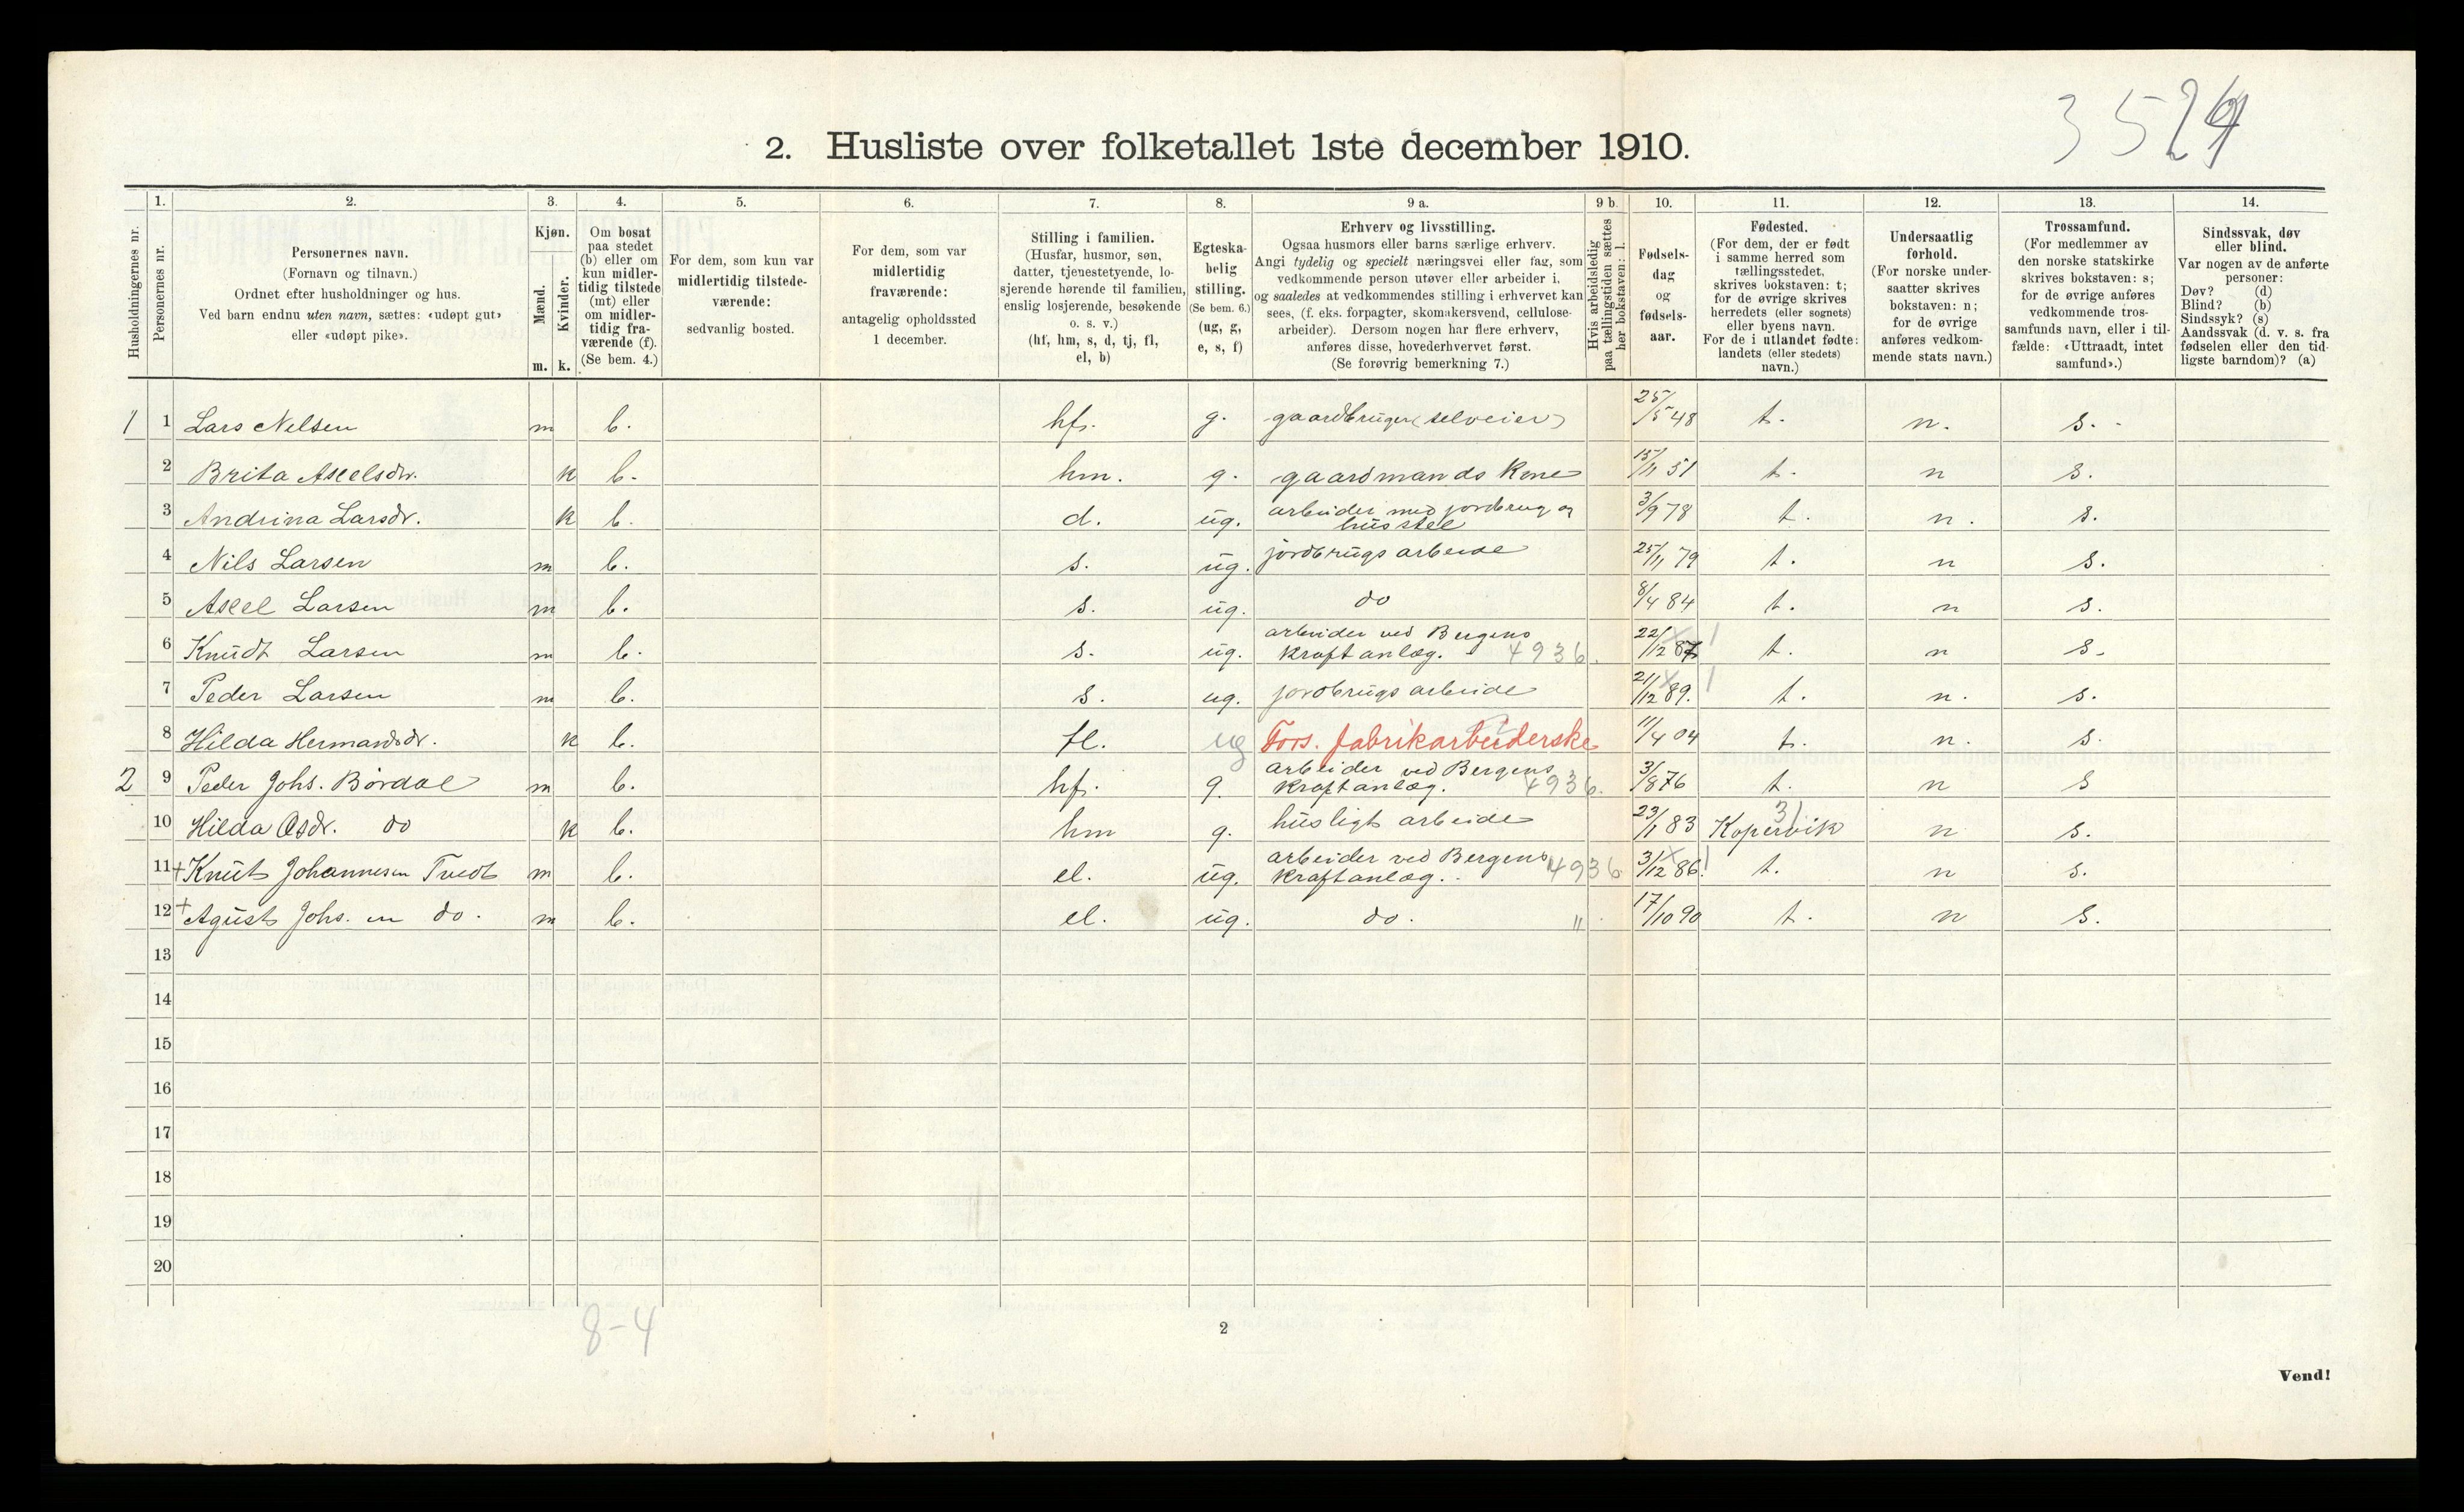 3524
2. Husliste over folketallet 1ste december 1910.
Husholdningernes nr.
1.
Personernes nr.
2.
Personernes navn.
(Fornavn og tilnavn.)
Ordnet efter husholdninger og hus.
Ved barn endnu uten navn, sættes: «udøpt gut»
eller «udøpt pike».
3.
Kjøn.
Mænd.
Kvinder.
m. k.
4.
Om bosat
paa stedet
(b) eller om
kun midler-
tidig tilstede
(mt) eller
om midler-
tidig fra-
værende (f).
(Se bem. 4.)
5.
For dem, som kun var
midlertidig tilstede-
værende:
sedvanlig bosted.
6.
For dem, som var
midlertidig
fraværende:
antagelig opholdssted
1 december.
7.
Stilling i familien.
(Husfar, husmor, søn,
datter, tjenestetyende, lo-
sjerende hørende til familien,
enslig losjerende, besøkende
o. s. v.)
(hf, hm, s, d, tj, fl,
el, b)
8.
Egteska-
belig
stilling.
(Se bem. 6.)
(ug, g,
e, s, f)
9 a.
Erhverv og livsstilling.
Ogsaa husmors eller barns særlige erhverv.
Angi tydelig og specielt næringsvei eller fag, som
vedkommende person utøver eller arbeider i,
og saaledes at vedkommendes stilling i erhvervet kan
sees, (f. eks. forpagter, skomakersvend, cellulose-
arbeider). Dersom nogen har flere erhverv,
anføres disse, hovederhvervet først.
(Se forøvrig bemerkning 7.)
9 b.
Hvis arbeidsledig
paa tællingstiden sættes
her bokstaven: l.
10.
Fødsels-
dag
og
fødsels-
aar.
11.
Fødested.
(For dem, der er født
i samme herred som
tællingsstedet,
skrives bokstaven: t;
for de øvrige skrives
herredets (eller sognets)
eller byens navn.
For de i utlandet fødte:
landets (eller stedets)
navn.)
12.
Undersaatlig
forhold.
(For norske under-
saatter skrives
bokstaven: n;
for de øvrige
anføres vedkom-
mende stats navn.)
13.
Trossamfund.
(For medlemmer av
den norske statskirke
skrives bokstaven: s;
for de øvrige anføres
vedkommende tros-
samfunds navn, eller i til-
fælde: «Uttraadt, intet
samfund».)
14.
Sindssvak, døv
eller blind.
Var nogen av de anførte
personer:
Døv? (d)
Blind? (b)
Sindssyk? (s)
Aandssvak (d. v. s. fra
fødselen eller den tid-
ligste barndom)? (a)
1 1 Lars Nelsen m b. hf. g. gaardbruger (selveier) 25/5 48 t. n. s.
2 Brita Axelsdr. k b. hm. g. gaardmands kone 15/11 51 t. n s.
3 Andrina Larsdr. k b. d. ug. arbeider med jordbrug og
husstel 3/9 78 t. n. s.
4 Nils Larsen m b. s. ug. jordbrugs arbeide 25/11 79 t. n s.
5 Axel Larsen m b. s. ug. do 8/4 84 t. n s.
6 Knudt Larsen m b. s. ug. arbeider ved Bergens
kraftanlæg. 4936. 22/12 87 t. n s.
7 Peder Larsen m b. s. ug. jordbrugs arbeide 21/12 89. t. n. s.
8 Hilda Hermandsdr. k b. fl. ug Fors. fabrikarbeiderske 11/4 04 t. n. s.
2 9 Peder Johs. Børdal m b. hf. g. arbeider ved Bergens
kraftanlæg. 4936. 3/8 76 t. n s
10 Hilda Osdr. do k b. hm g. husligt arbeide 23/1 83 Kopervik n s.
11 + Knut Johannesen Tvedt m b. el. ug. arbeider ved Bergens
kraftanlæg. 4936 3/12 86. t. n s.
12 + Agust Johs. en do. m b. el. ug. do. " 17/10 90 t. n s.
13
14
15
16
17
18
19
20
8-4
2
Vend!